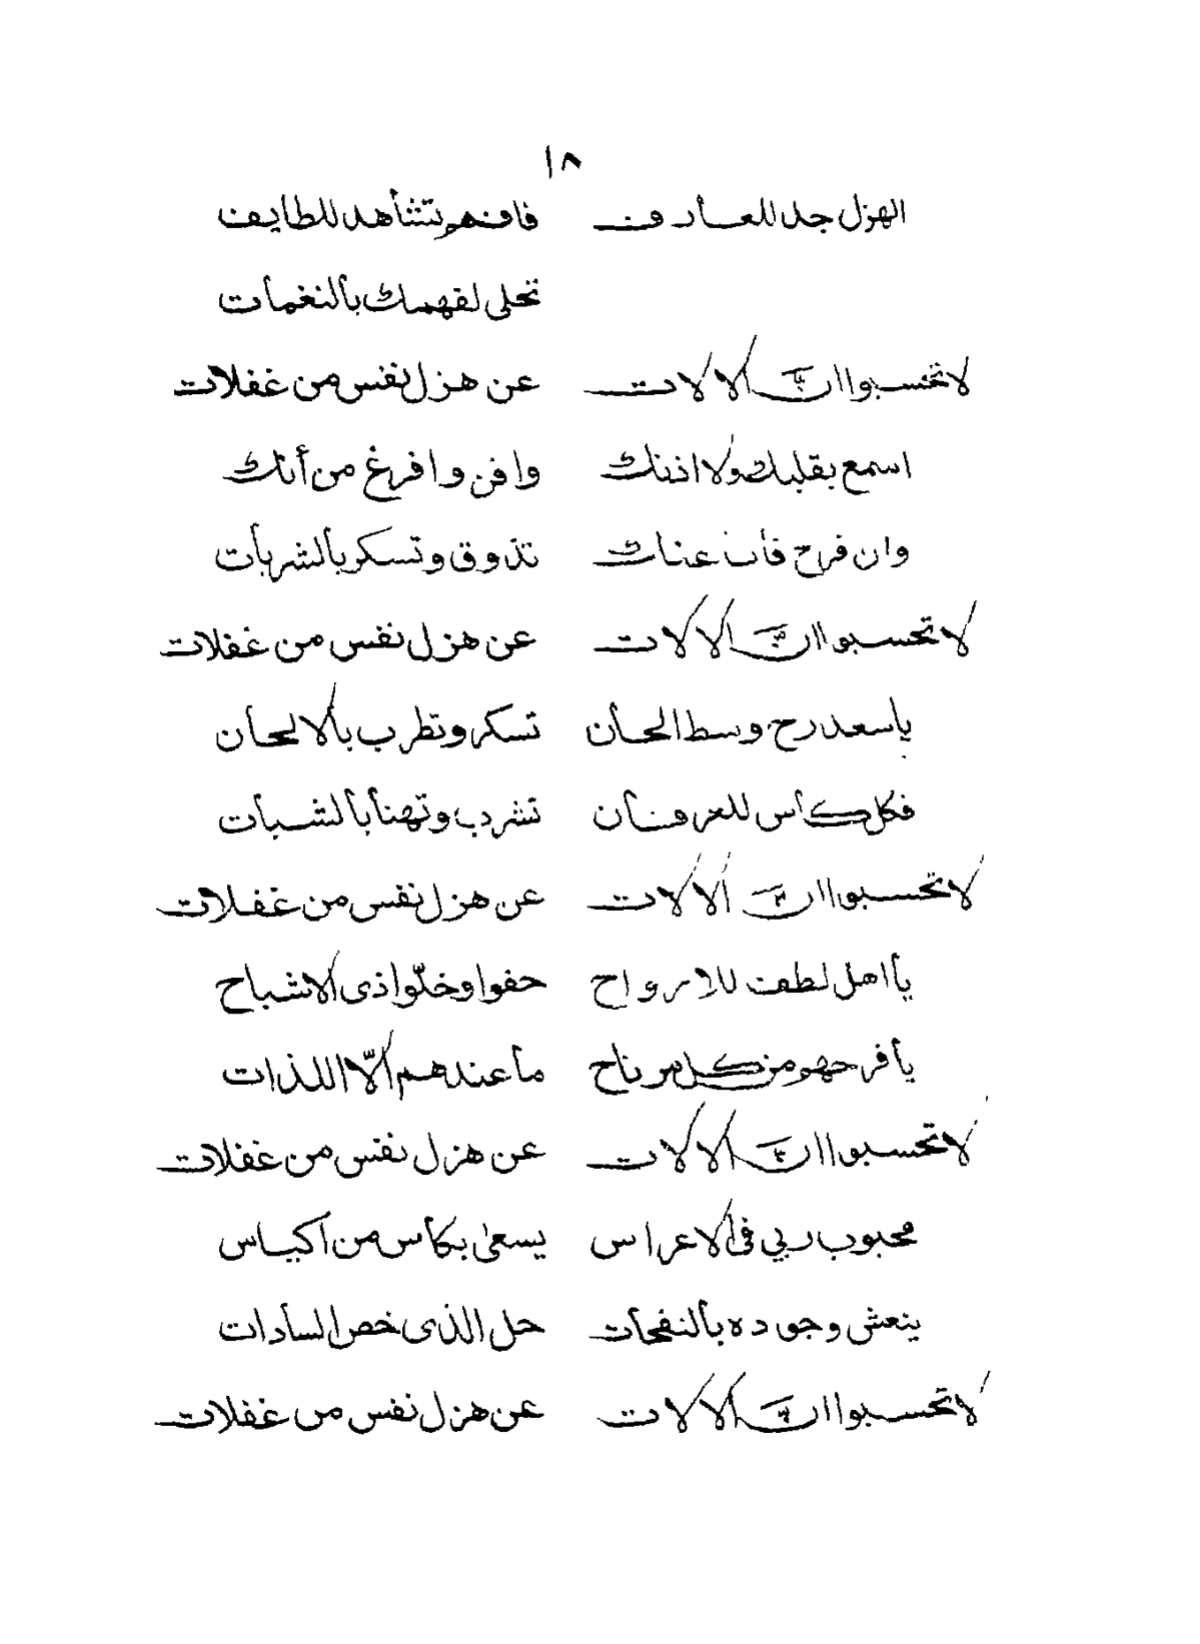 ١٨
الهزل جد للعارف فافهم تشاهد للطايف
تحلى لفهمك بالنغمات
لا تحسبوا ان الالات عن هزل نفس من غفلات
اسمع بقلبك ولا اذنك وافن وافرغ من أنك
وان فرح فأن عناك تذوق وتسكر بالشربات
لا تحسبوا ان الالات عن هزل نفس من غفلات
ياسعد رح وسط الحان تسكر وتطرب بالالحان
فكل كأس للعرفان تشرب وتهنأ بالشبات
لا تحسبوا ان الالات عن هزل نفس من غفلات
يا اهل لطف للارواح حفوا وخلّوا ذى الاشباح
يا فرحهو من كل مرتاح ما عندهم الّا اللذات
لا تحسبوا ان الالات عن هزل نفس من غفلات
محبوب ربي فى الاعراس يسعى بكأس من اكياس
ينعش وجوده بالنفحات حل الذى خص السادات
لا تحسبوا ان الالات عن هزل نفس من غفلات